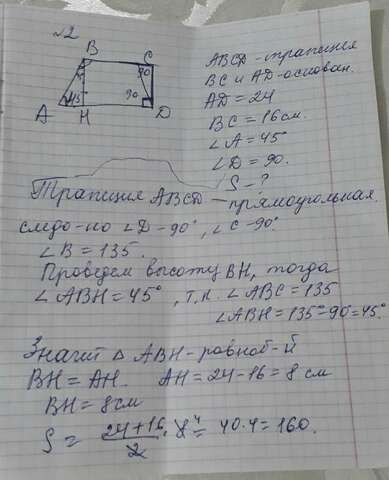 №2
B C
90
45 90
A H D
ABCD - трапеция
BC и AD - основан.
AD = 24
BC = 16 см.
∠A = 45°
∠D = 90.
S - ?
Трапеция ABCD - прямоугольная.
следо-но ∠D - 90°, ∠C - 90°
∠B = 135.
Проведем высоту BH, тогда
∠ABH = 45°, т.к. ∠ABC = 135
∠ABH = 135° - 90° = 45°
Значит △ ABH - равноб-й
BH = AH. AH = 24 - 16 = 8 см
BH = 8 см
S = (24 + 16)/2 · 8 4 = 40 · 4 = 160.